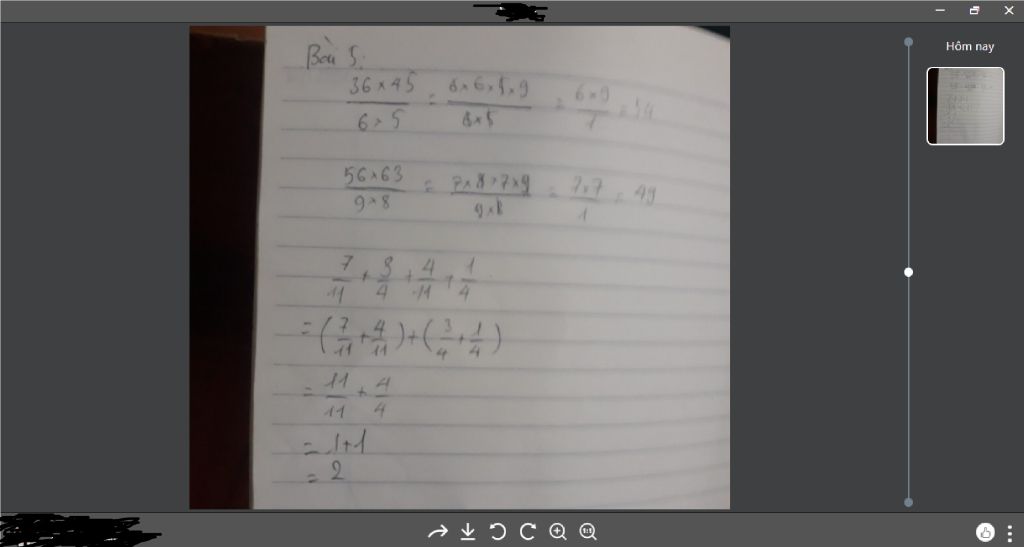 Hôm nay
Bài 5:
36 × 45 / 6 × 5 = 6 × 6 × 5 × 9 / 6 × 5 = 6 × 9 / 1 = 54
56 × 63 / 9 × 8 = 7 × 8 × 7 × 9 / 9 × 8 = 7 × 7 / 1 = 49
7/11 + 3/4 + 4/11 + 1/4
= (7/11 + 4/11) + (3/4 + 1/4)
= 11/11 + 4/4
= 1 + 1
= 2
1:1